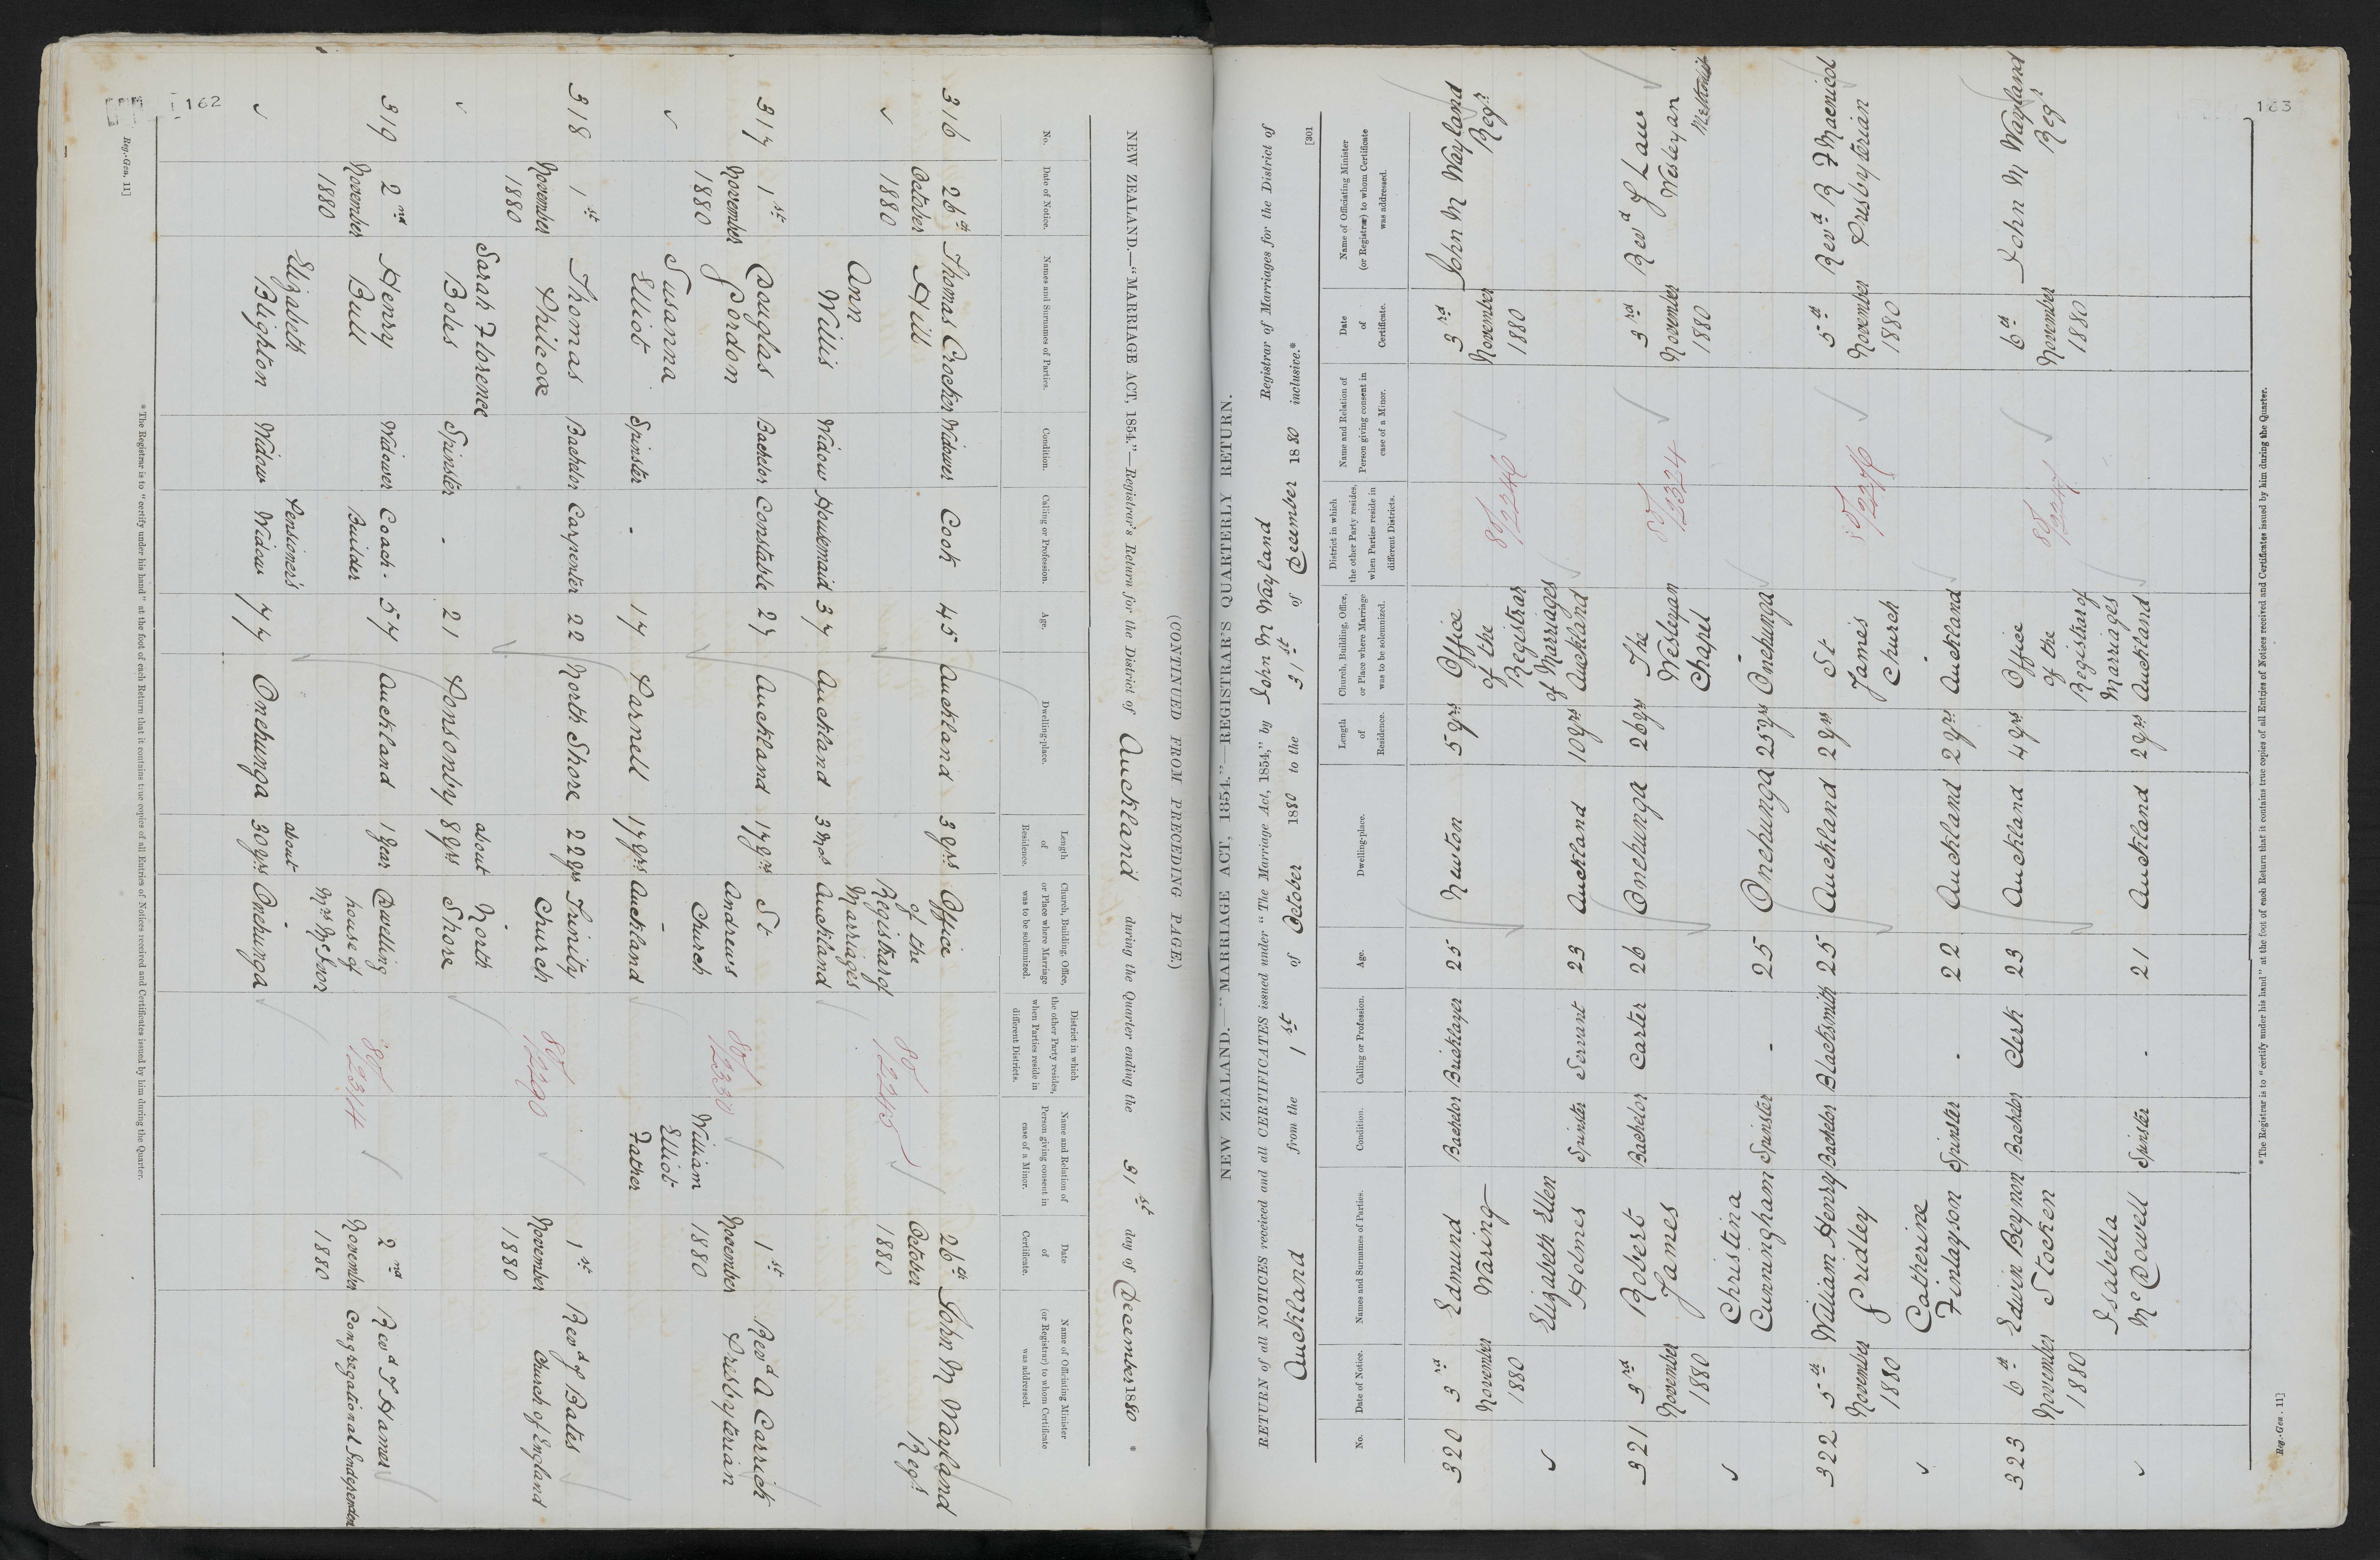 162
(CONTINUED FROM PRECEDING PAGE.)
NEW ZEALAND.—"MARRIAGE ACT, 1854."—Registrar's Return for the District of Auckland during the Quarter ending the 31st day of December 1880 *
No. Date of Notice. Names and Surnames of Parties. Condition. Calling or Profession. Age. Dwelling-place. Length of Residence. Church, Building, Office, or Place where Marriage was to be solemnized. District in which the other Party resides, when Parties reside in different Districts. Name and Relation of Person giving consent in case of a Minor. Date of Certificate. Name of Officiating Minister (or Registrar) to whom Certificate was addressed.
316 26th Thomas Crocker Widower Cook 45 Auckland 3 yrs Office 26th John M Wayland
October Hill of the October Regr
1880 Registrar of 80/2245 1880
Ann Marriages
Willis Widow Housemaid 37 Auckland 3 Mos Auckland
317 1st Douglas Bachelor Constable 27 Auckland 17 yrs St 1st Revd A Carrick
November Gordon Andrews November Presbyterian
1880 Church William 1880
Susanna - Elliot
Elliot Spinster - 17 Parnell 17 yrs Auckland Father
318 1st Thomas Bachelor Carpenter 22 North Shore 22 yrs Trinity 1st Revd J Bates
November Philcox Church November Church of England
1880 1880
Sarah Florence about North
Boles Spinster - 21 Ponsonby 8 yrs Shore
319 2nd Henry Widower Coach- 57 Auckland 1 Year Dwelling 2nd Revd T Hamer
November Bull Builder house of November Congregational Independent
1880 1880
Elizabeth Pensioner's about -
Blighton Widow Widow 77 Onehunga 30 yrs Onehunga
* The Registrar is to "certify under his hand" at the foot of each Return that it contains true copies of all Entries of Notices received and Certificates issued by him during the Quarter.
Reg.-Gen. 11]
163
[301
NEW ZEALAND.—"MARRIAGE ACT, 1854."—REGISTRAR'S QUARTERLY RETURN.
RETURN of all NOTICES received and all CERTIFICATES issued under "The Marriage Act, 1854," by John M Wayland Registrar of Marriages for the District of
Auckland from the 1st of October 1880 to the 31st of December 1880 inclusive.*
No. Date of Notice. Names and Surnames of Parties. Condition. Calling or Profession. Age. Dwelling-place. Length of Residence. Church, Building, Office, or Place where Marriage was to be solemnized. District in which the other Party resides, when Parties reside in different Districts. Name and Relation of Person giving consent in case of a Minor. Date of Certificate. Name of Officiating Minister (or Registrar) to whom Certificate was addressed.
320 3rd Edmund Bachelor Bricklayer 25 Newton 5 yrs Office 3rd John M Wayland
November Waring of the November Regr
1880 Registrar 80/2246 1880
Elizabeth Ellen of Marriages
Holmes Spinster Servant 23 Auckland 10 yrs Auckland
321 3rd Robert Bachelor Carter 26 Onehunga 26 yrs The 3rd Revd J Law
November James Wesleyan 80/2324 November Wesleyan
1880 Chapel 1880 Methodist
Christina -
Cunningham Spinster - 25 Onehunga 25 yrs Onehunga
322 5th William Henry Bachelor Blacksmith 25 Auckland 2 yrs St 5th Revd R F Macnicol
November Gridley James November Presbyterian
1880 Church 1880
Catherine -
Finlayson Spinster - 22 Auckland 2 yrs Auckland
323 6th Edwin Beynon Bachelor Clerk 23 Auckland 4 yrs Office 6th John M Wayland
November Stocken of the 80/2247 November Regr
1880 Registrar of 1880
Isabella Marriages
McDowell Spinster - 21 Auckland 2 yrs Auckland
* The Registrar is to "certify under his hand" at the foot of each Return that it contains true copies of all Entries of Notices received and Certificates issued by him during the Quarter.
Reg.-Gen. 11]